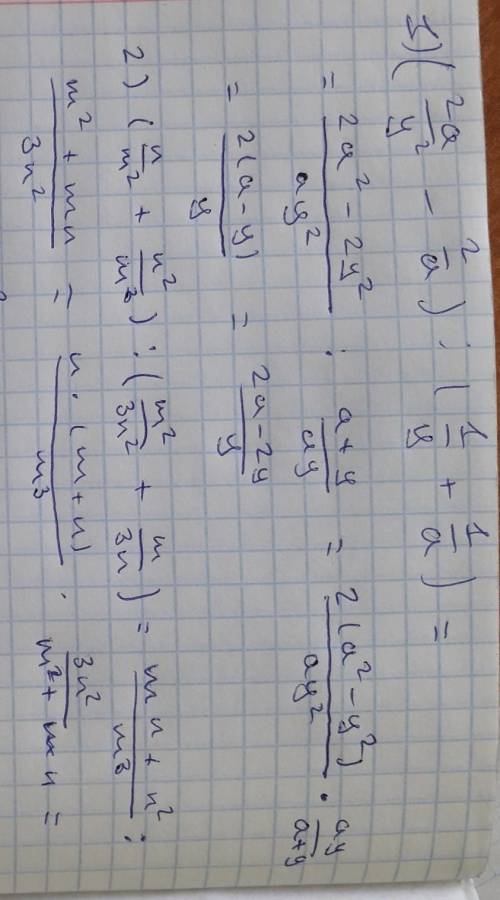 1) (2a/y² − 2/a) : (1/y + 1/a) =
= (2a² − 2y²)/(ay²) : (a+y)/(ay) = 2(a² − y²)/(ay²) · ay/(a+y)
= 2(a−y)/y = (2a−2y)/y
2) (n/m² + n²/m³) : (m²/3n² + m/3n) = (mn + n²)/m³ :
(m² + mn)/3n² = n·(m+n)/m³ · 3n²/(m²+mn) =